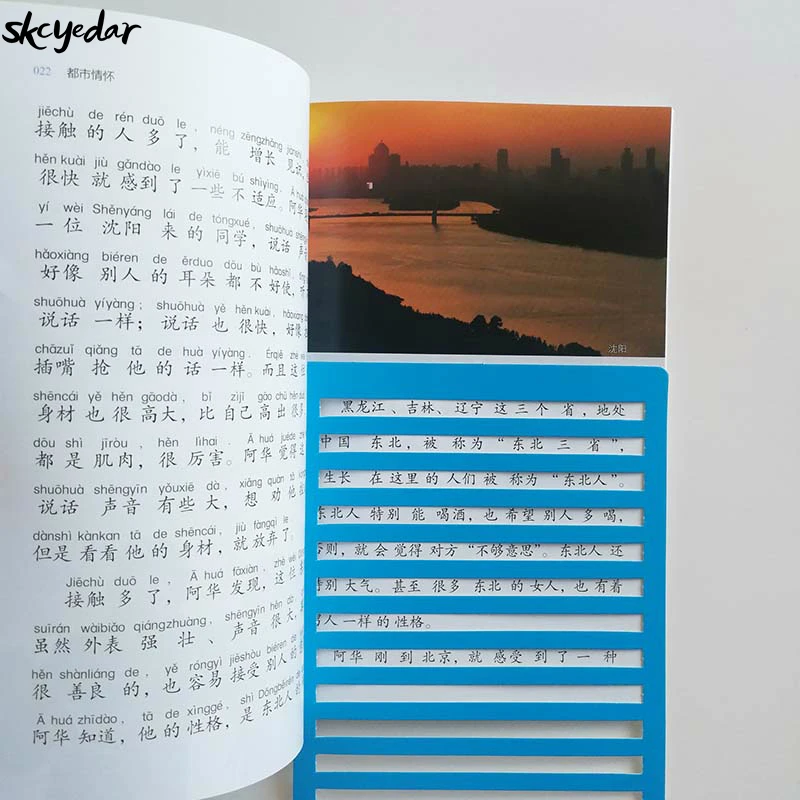 skcyedar
022 都市情怀
jiēchù de rén duō le, néng zēngzhǎng jiànshi
接触的人多了，能 增长 见识
hěn kuài jiù gǎndào le yìxiē bú shìyìng. Ā huá
很快就感到了一些不适应。阿华
yí wèi Shěnyáng lái de tóngxué, shuōhuà
一位 沈阳 来的同学，说话 声
hǎoxiàng biéren de ěrduo dōu bù hǎoshǐ,
好像 别人的耳朵都不好使，
shuōhuà yíyàng; shuōhuà yě hěn kuài, hǎoxiàng
说话一样；说话也很快，好像
chāzuǐ qiǎng tā de huà yíyàng. Érqiě zhè
插嘴抢他的话一样。而且这
shēncái yě hěn gāodà, bǐ zìjǐ gāo chū hěnduō
身材也很高大，比自己高出很多
dōu shì jīròu, hěn lìhai. Ā huá juéde zhè
都是肌肉，很厉害。阿华觉得这
shuōhuà shēngyīn yǒuxiē dà, xiǎng quàn tā
说话 声音 有些大，想 劝他
dànshì kànkan tā de shēncái, jiù fàngqì le
但是看看他的身材，就放弃了
Jiēchù duō le, Ā huá fāxiàn, zhè wèi
接触多了，阿华发现，这位
suīrán wàibiǎo qiángzhuàng, shēngyīn hěn dà
虽然外表 强 壮、声音很大
hěn shànliáng de, yě róngyì jiēshòu biéren de
很 善良 的，也容易接受别人的
Ā huá zhīdào, tā de xìnggé, shì Dōngběirén de
阿华知道，他的性格，是东北人的
沈阳
黑龙江、吉林、辽宁这三个省，地处
中国 东北，被 称为“东北三省”，
生长 在这里的人们被 称为“东北人”。
东北人特别能喝酒，也希望别人多喝，
否则，就会觉得对方“不够意思”。东北人还
特别大气。甚至很多东北的女人，也有着
男人一样的性格。
阿华刚到北京，就感受到了一种